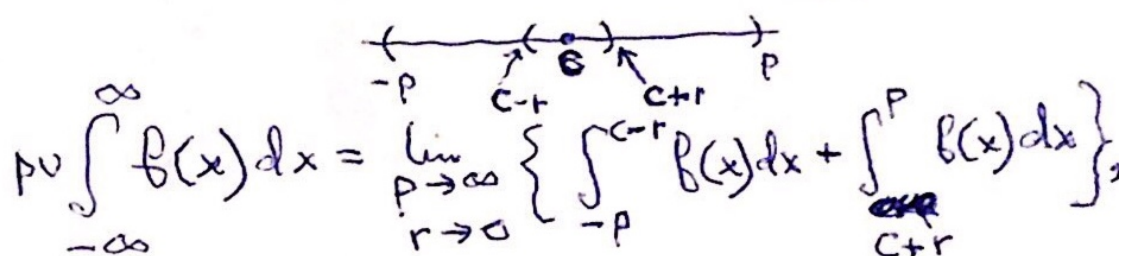 -P c-r c c+r P
pv ∫_{-∞}^{∞} f(x) dx = lim_{P→∞, r→0} { ∫_{-P}^{c-r} f(x) dx + ∫_{c+r}^{P} f(x) dx },